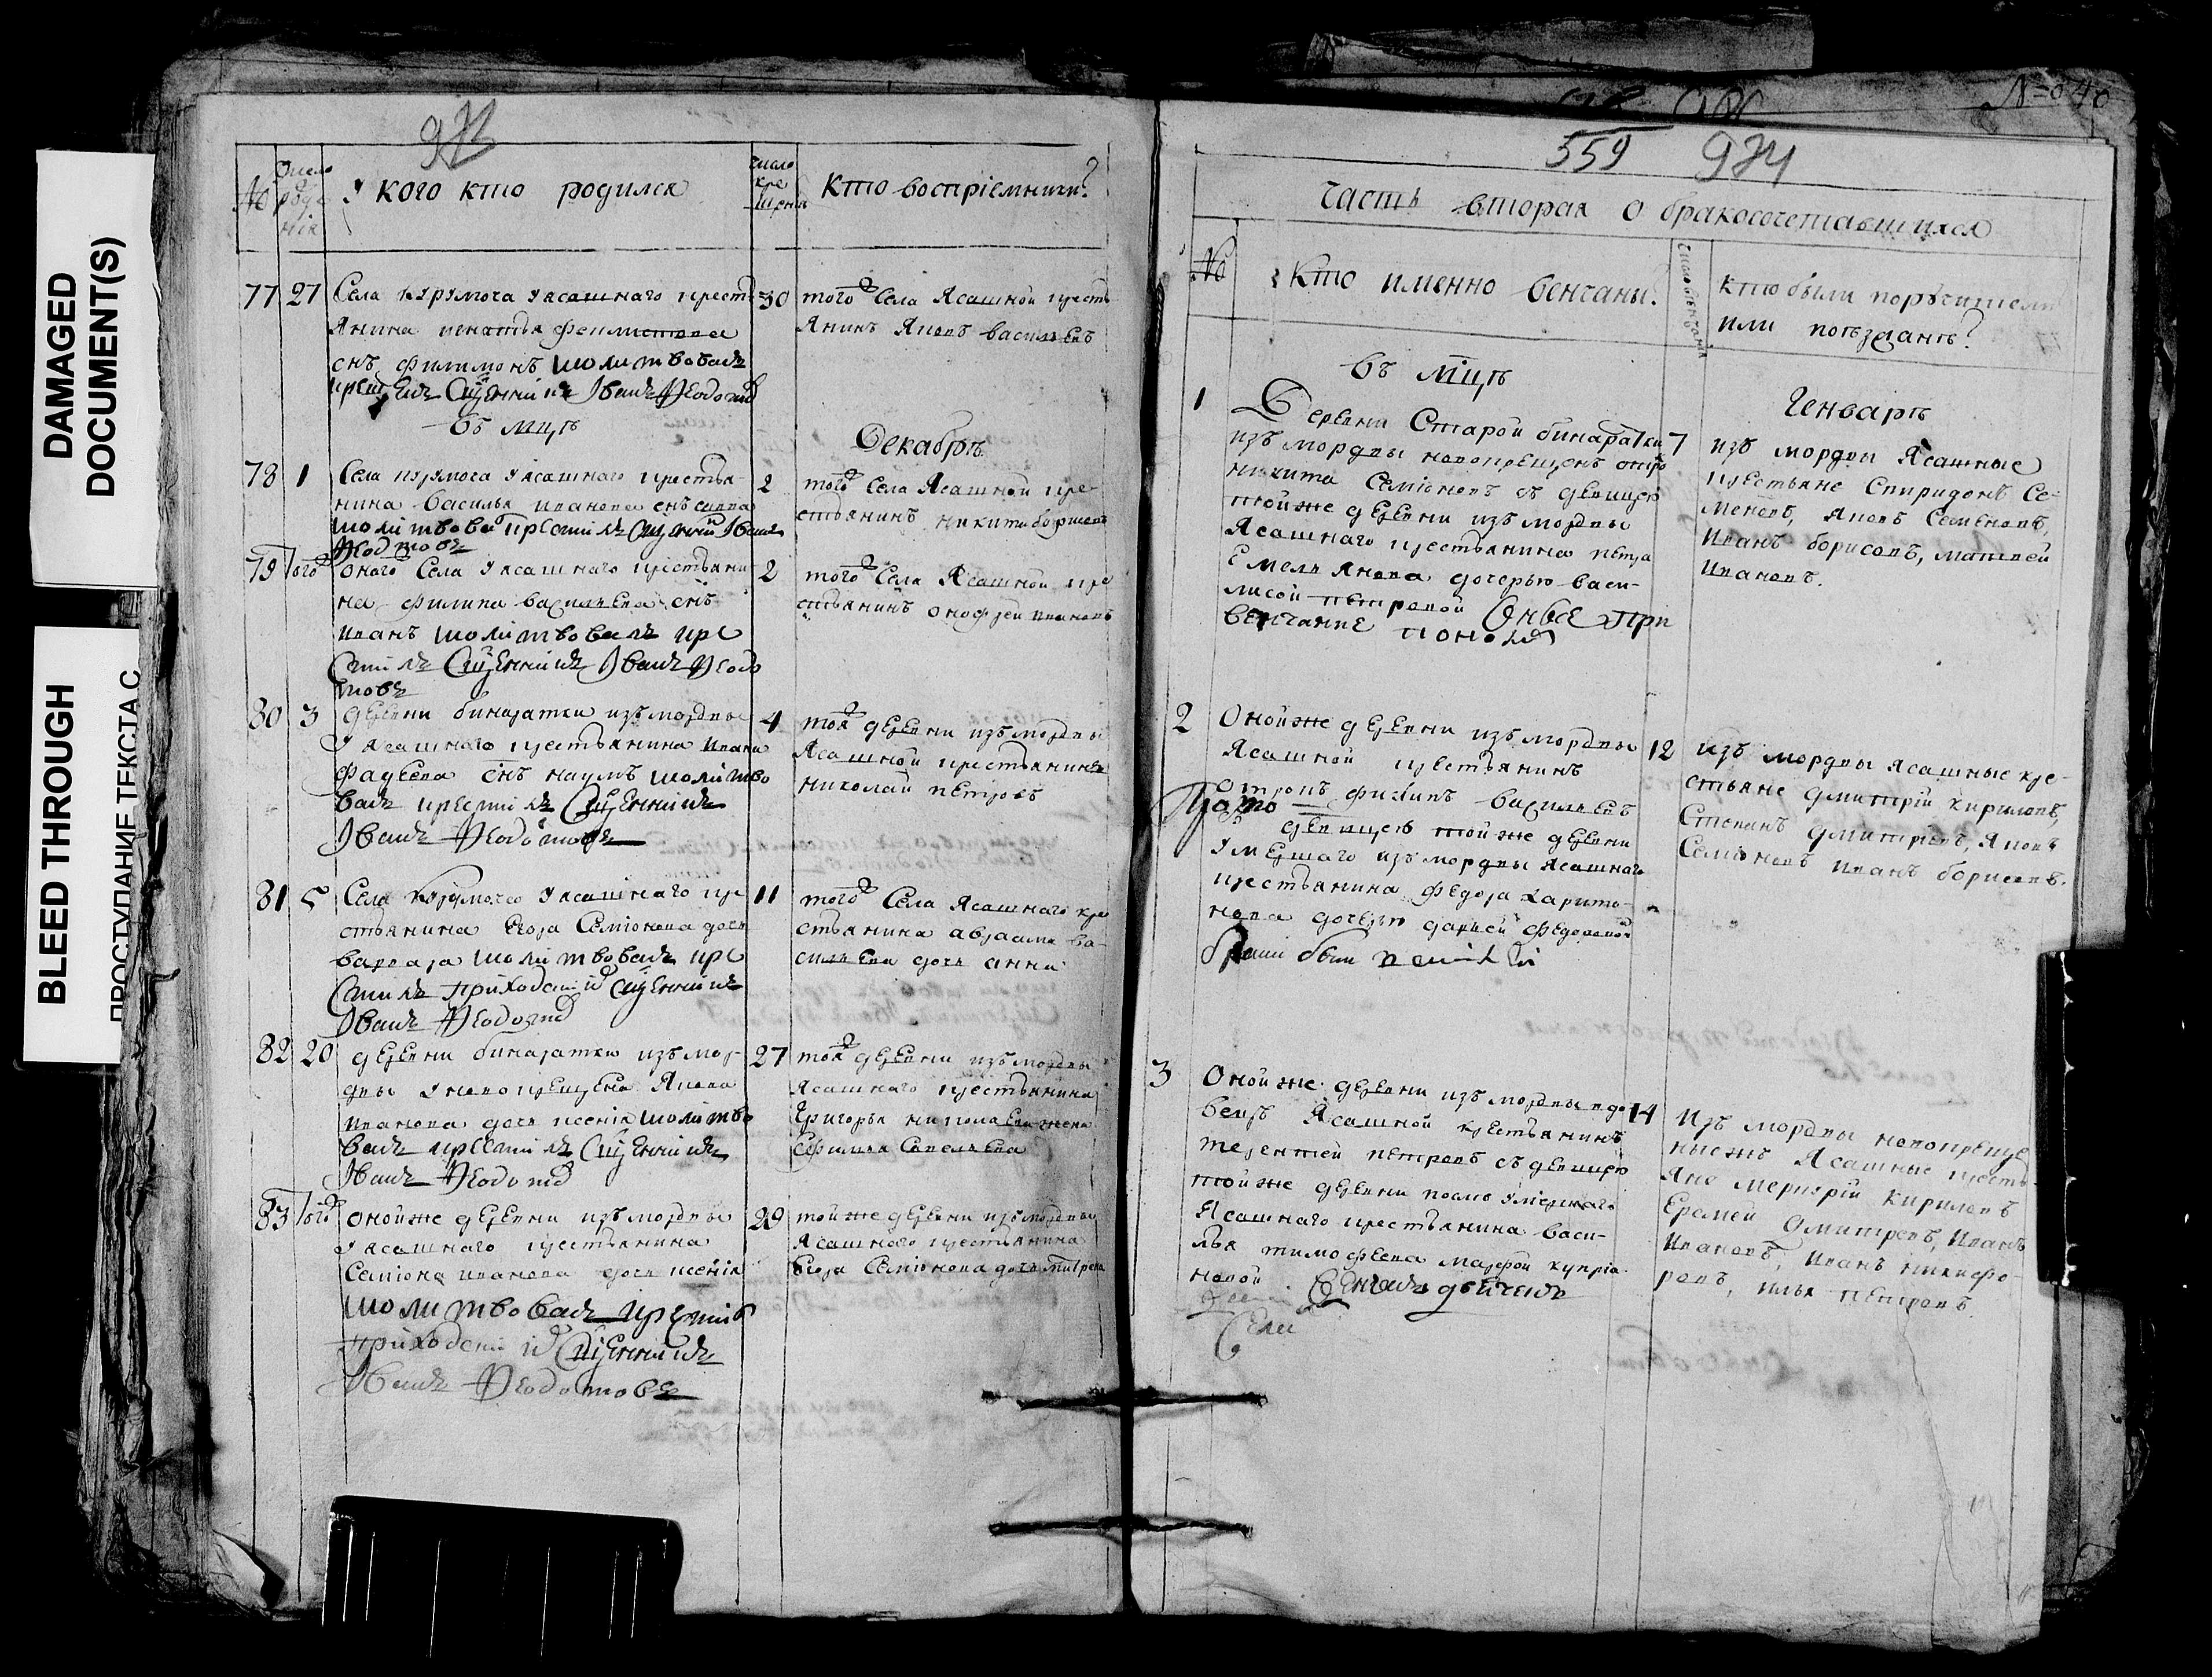 DAMAGED
DOCUMENT(S)
BLEED THROUGH
ПРОСТУПАНИЕ ТЕКСТА С
№
Число
рож
нія
У кого кто родился
число
кре
щенія
Кто воспріемники?
77 27
Села курумоча у ясашнаго крестъ
янина игнатья феклистова
снъ филимонъ молитвовалъ
крестилъ Сщенникъ Иванъ Ѳеодотовъ
30
того Села Ясашной кресть
янинъ Яковъ васильевъ
въ мцѣ
Декабрѣ
78 1
Села курумоча у ясашнаго крестья-
нина василья иванова снъ савва
молитвовалъ крестилъ Сщенникъ Иванъ
Ѳеодотовъ
2
того Села Ясашной кре
стьянинъ никита борисовъ
79 того
оного Села у ясашнаго крестьяни
на филипа васильева снъ
иванъ молитвовалъ кре
стилъ Сщенникъ Иванъ Ѳеодо
товъ
2
того Села Ясашной кре
стьянинъ онофрей ивановъ
80 3
деревни бинаратки изъ мордвы
у ясашнаго крестьянина ивана
фадеева снъ наумъ молитво
валъ крестилъ Сщенникъ
Иванъ Ѳеодотовъ
4
тоя деревни изъ мордвы
Ясашной крестьянинъ
николай петровъ
81 5
Села курумоча у ясашнаго кре
стьянина Егора Семіонова дочь
варвара молитвовалъ кре
стилъ приходской сщенникъ
Иванъ Ѳеодотовъ
11
того Села Ясашнаго кре
стьянина авраама ва-
сильева дочь анна
82 20
деревни бинаратки изъ мор-
двы у новокрещена Якова
иванова дочь ксенія молитво
валъ крестилъ Сщенникъ
Иванъ Ѳеодотовъ
27
тоя деревни изъ мордвы
Ясашнаго крестьянина
Григорья николаева жена
Ефимья Савельева
83 того
оной же деревни изъ мордвы
у ясашнаго крестьянина
Семіона иванова дочь ксенія
молитвовалъ крестилъ
приходской Сщенникъ
Иванъ Ѳеодотовъ
29
той же деревни изъ мордвы
Ясашнаго крестьянина
Егора Семіонова дочь
№ 040
559 974
Часть вторая о бракосочетавшихся
№
Кто именно венчаны?
Число венчанія
кто были поручители
или поезжанѣ?
въ мцѣ
Генварѣ
1
Деревни Старой бинаратки
изъ мордвы новокрещенъ отрокъ
никита Семіоновъ съ девицею
той же деревни изъ мордвы
Ясашнаго крестьянина петра
Емельянова дочерью васи-
лисой петровой
венчание
7
изъ мордвы Ясашные
крестьяне Спиридонъ Се-
меновъ, яковъ Семеновъ,
Иванъ борисовъ, матвей
Ивановъ.
2
Оной же деревни изъ мордвы
Ясашной крестьянинъ
отрокъ филипъ васильевъ
девицею той же деревни
умершаго изъ мордвы ясашнаго
крестьянина федора харито-
нова дочерью дарьей федоровой
12
изъ мордвы ясашные кре-
стьяне дмитрій кириловъ,
Степанъ дмитріевъ, яковъ
Семіоновъ иванъ борисовъ.
3
Оной же деревни изъ мордвы вдо
вецъ Ясашной крестьянинъ
терентей петровъ съ девицею
той же деревни послѣ умершаго
Ясашнаго крестьянина васи-
лья тимофеева марфой купріа
новой
14
Изъ мордвы новокреще
ныежъ Ясашные кресть-
яне меркурій кириловъ
Еремей дмитревъ, Иванъ
Ивановъ, Иванъ никифо-
ровъ, илья петровъ